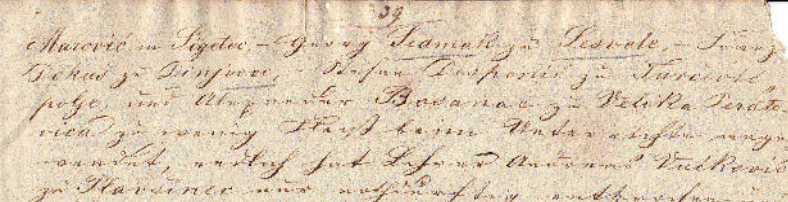 39
Marović in Sigetec, – Georg Tramak zu Lesvale, – Franz
Dekuš zu Dinjevac, – Stefan zu
polje, und Alexander Bosanac zu Velika Perato-
vica zu wenig Fleiß beim Unterrichte ange-
wendet, endlich hat Lehrer Andreas Vučković
zu Plavšinec nur nothdürftig entsprochen